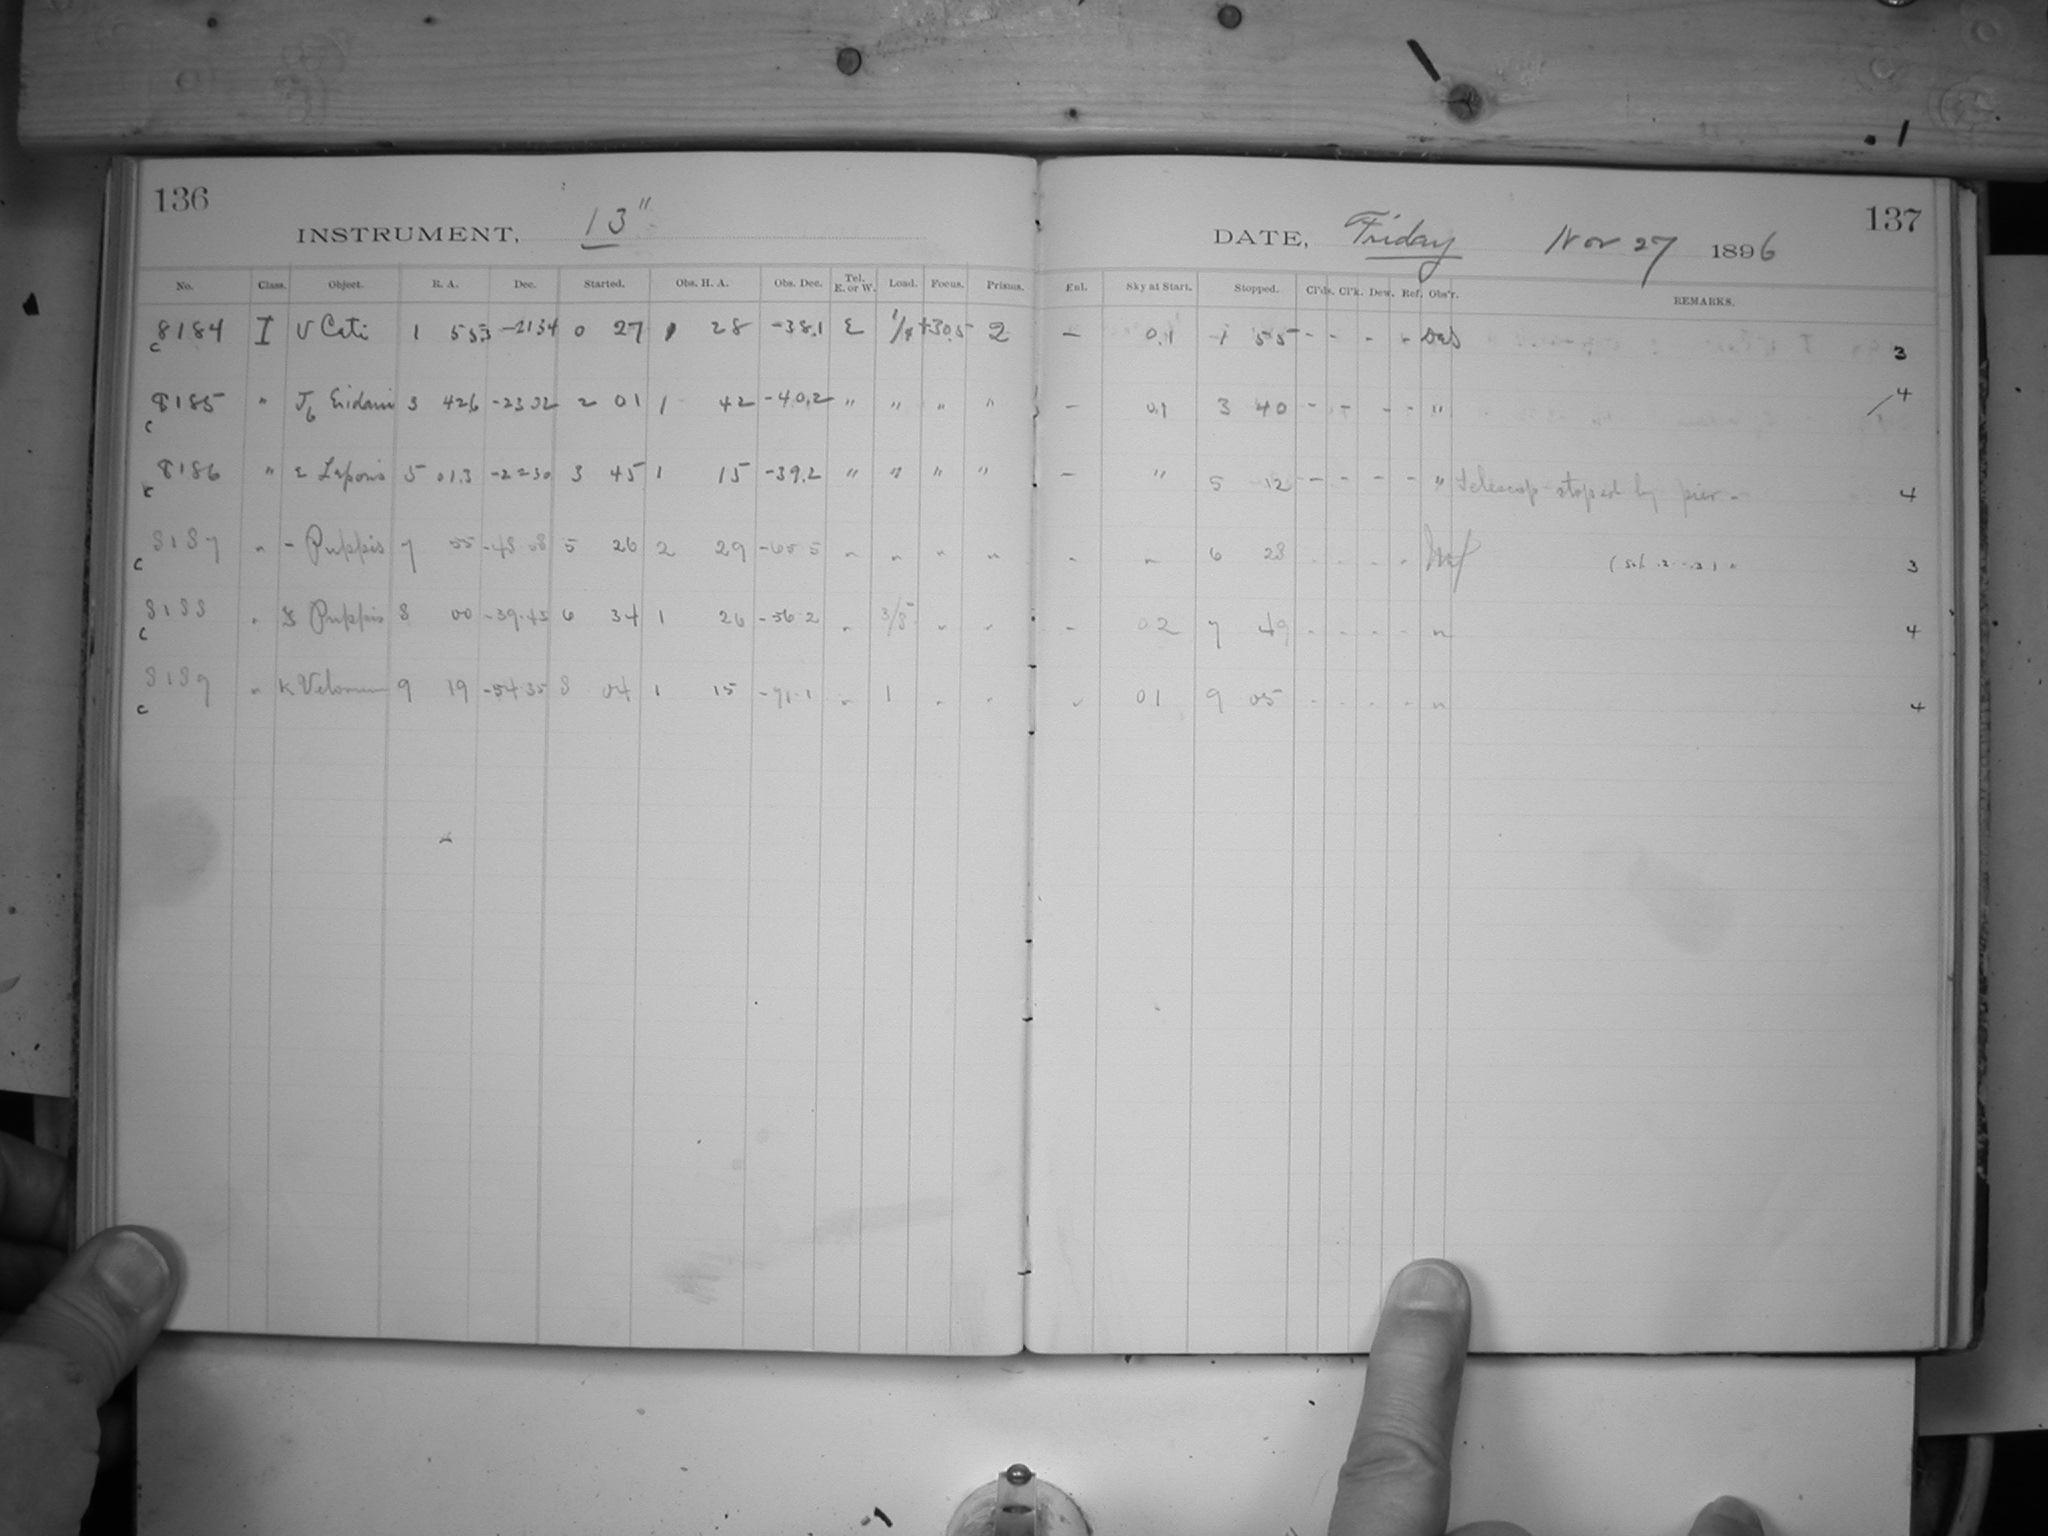 136
INSTRUMENT, 13"
No. Class. Object. R. A. Dec. Started. Obs. H. A. Obs. Dec. Tel. E. or W. Load. Focus. Prisms.
8184 I υ Ceti 1 55.3 -21 34 0 27 1 28 -38.1 E 1/8 +30.5 2
c
8185 " 6 Eridani 3 42.6 -23 32 2 01 1 42 -40.2 " " " "
c
8186 " ε Leporis 5 01.3 -22 30 3 45 1 15 -39.2 " " " "
c
8187 " - Puppis 7 55 -48 58 5 26 2 29 -65 5 " " " "
c
8188 " Puppis 8 00 -39.45 6 34 1 26 -56 2 " 3/8 " "
c
8189 " K Velorum 9 19 -54 35 8 04 1 15 -71.1 " 1 " "
c
137
DATE, Friday Nov 27 1896
Enl. Sky at Start. Stopped. Cl'ds. Cl'k. Dew. Ref. Obs'r. REMARKS.
- 0.1 1 55 - - - - 3
- 0.1 3 40 - - - - " 4
- " 5 12 - - - - " Telescop stoped by pier - 4
- " 6 28 - - - - 3
- 02 7 49 - - - - " 4
" 01 9 05 - - - - " 4